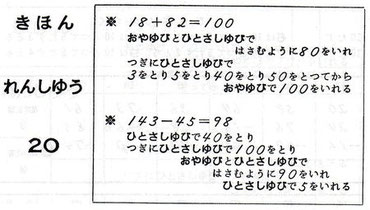 きほん
れんしゆう
20
※ 18+82=100
おやゆびとひとさしゆびで
はさむように80をいれ
つぎにひとさしゆびで
3をとり5をとり40をとり50をとつてから
おやゆびで100をいれる
※ 143-45=98
ひとさしゆびで40をとり
つぎにひとさしゆびで100をとり
おやゆびとひとさしゆびで
はさむように90をいれ
ひとさしゆびで5をいれる